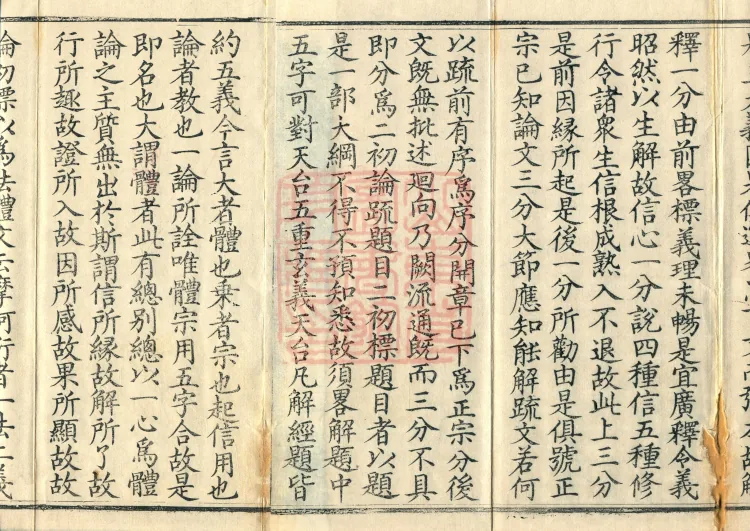 釋一分由前畧標義理未暢是宜廣釋令義
昭然以生解故信心一分說四種信五種修
行令諸衆生信根成熟入不退故此上三分
是前因緣所起是後一分所勸由是俱號正
宗已知論文三分大節應知能解疏文若何
以疏前有序爲序分開章已下爲正宗分後
文旣無批述迴向乃闕流通旣而三分不具
即分爲二初論疏題目二初標題目者以題
是一部大綱不得不預知悉故須畧解題中
五字可對天台五重玄義天台凡解經題皆
約五義今言大者體也乘者宗也起信用也
論者教也一論所詮唯體宗用五字合故是
即名也大謂體者此有總別總以一心爲體
論之主質無出於斯謂信所緣故解所了故
行所趣故證所入故因所感故果所顯故故
論初標以爲法體文云摩訶衍者一法二義